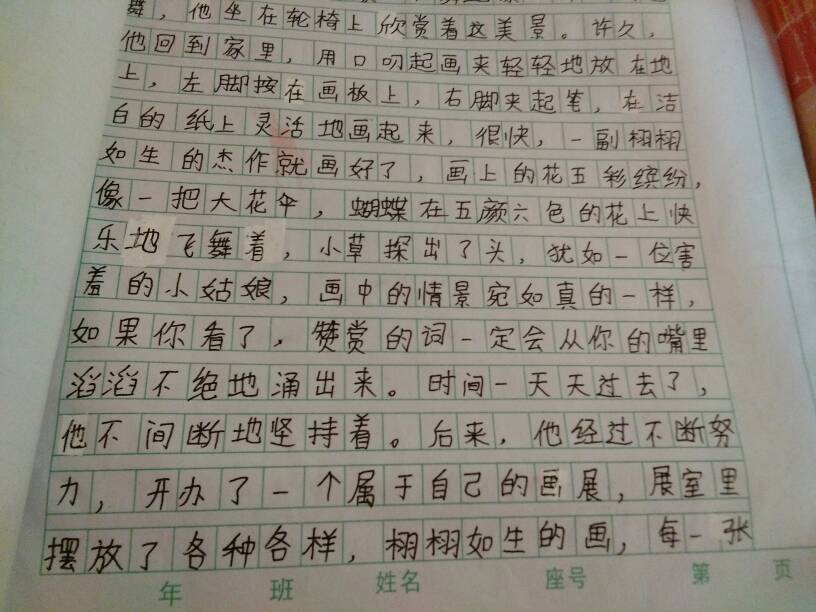 舞，他坐在轮椅上欣赏着这美景。许久，
他回到家里，用口叼起画夹轻轻地放在地
上，左脚按在画板上，右脚夹起笔，在洁
白的纸上灵活地画起来，很快，一副栩栩
如生的杰作就画好了，画上的花五彩缤纷，
像一把大花伞，蝴蝶在五颜六色的花上快
乐地飞舞着，小草探出了头，犹如一位害
羞的小姑娘，画中的情景宛如真的一样，
如果你看了，赞赏的词一定会从你的嘴里
滔滔不绝地涌出来。时间一天天过去了，
他不间断地坚持着。后来，他经过不断努
力，开办了一个属于自己的画展，展室里
摆放了各种各样，栩栩如生的画，每一张
年 班 姓名 座号 第 页